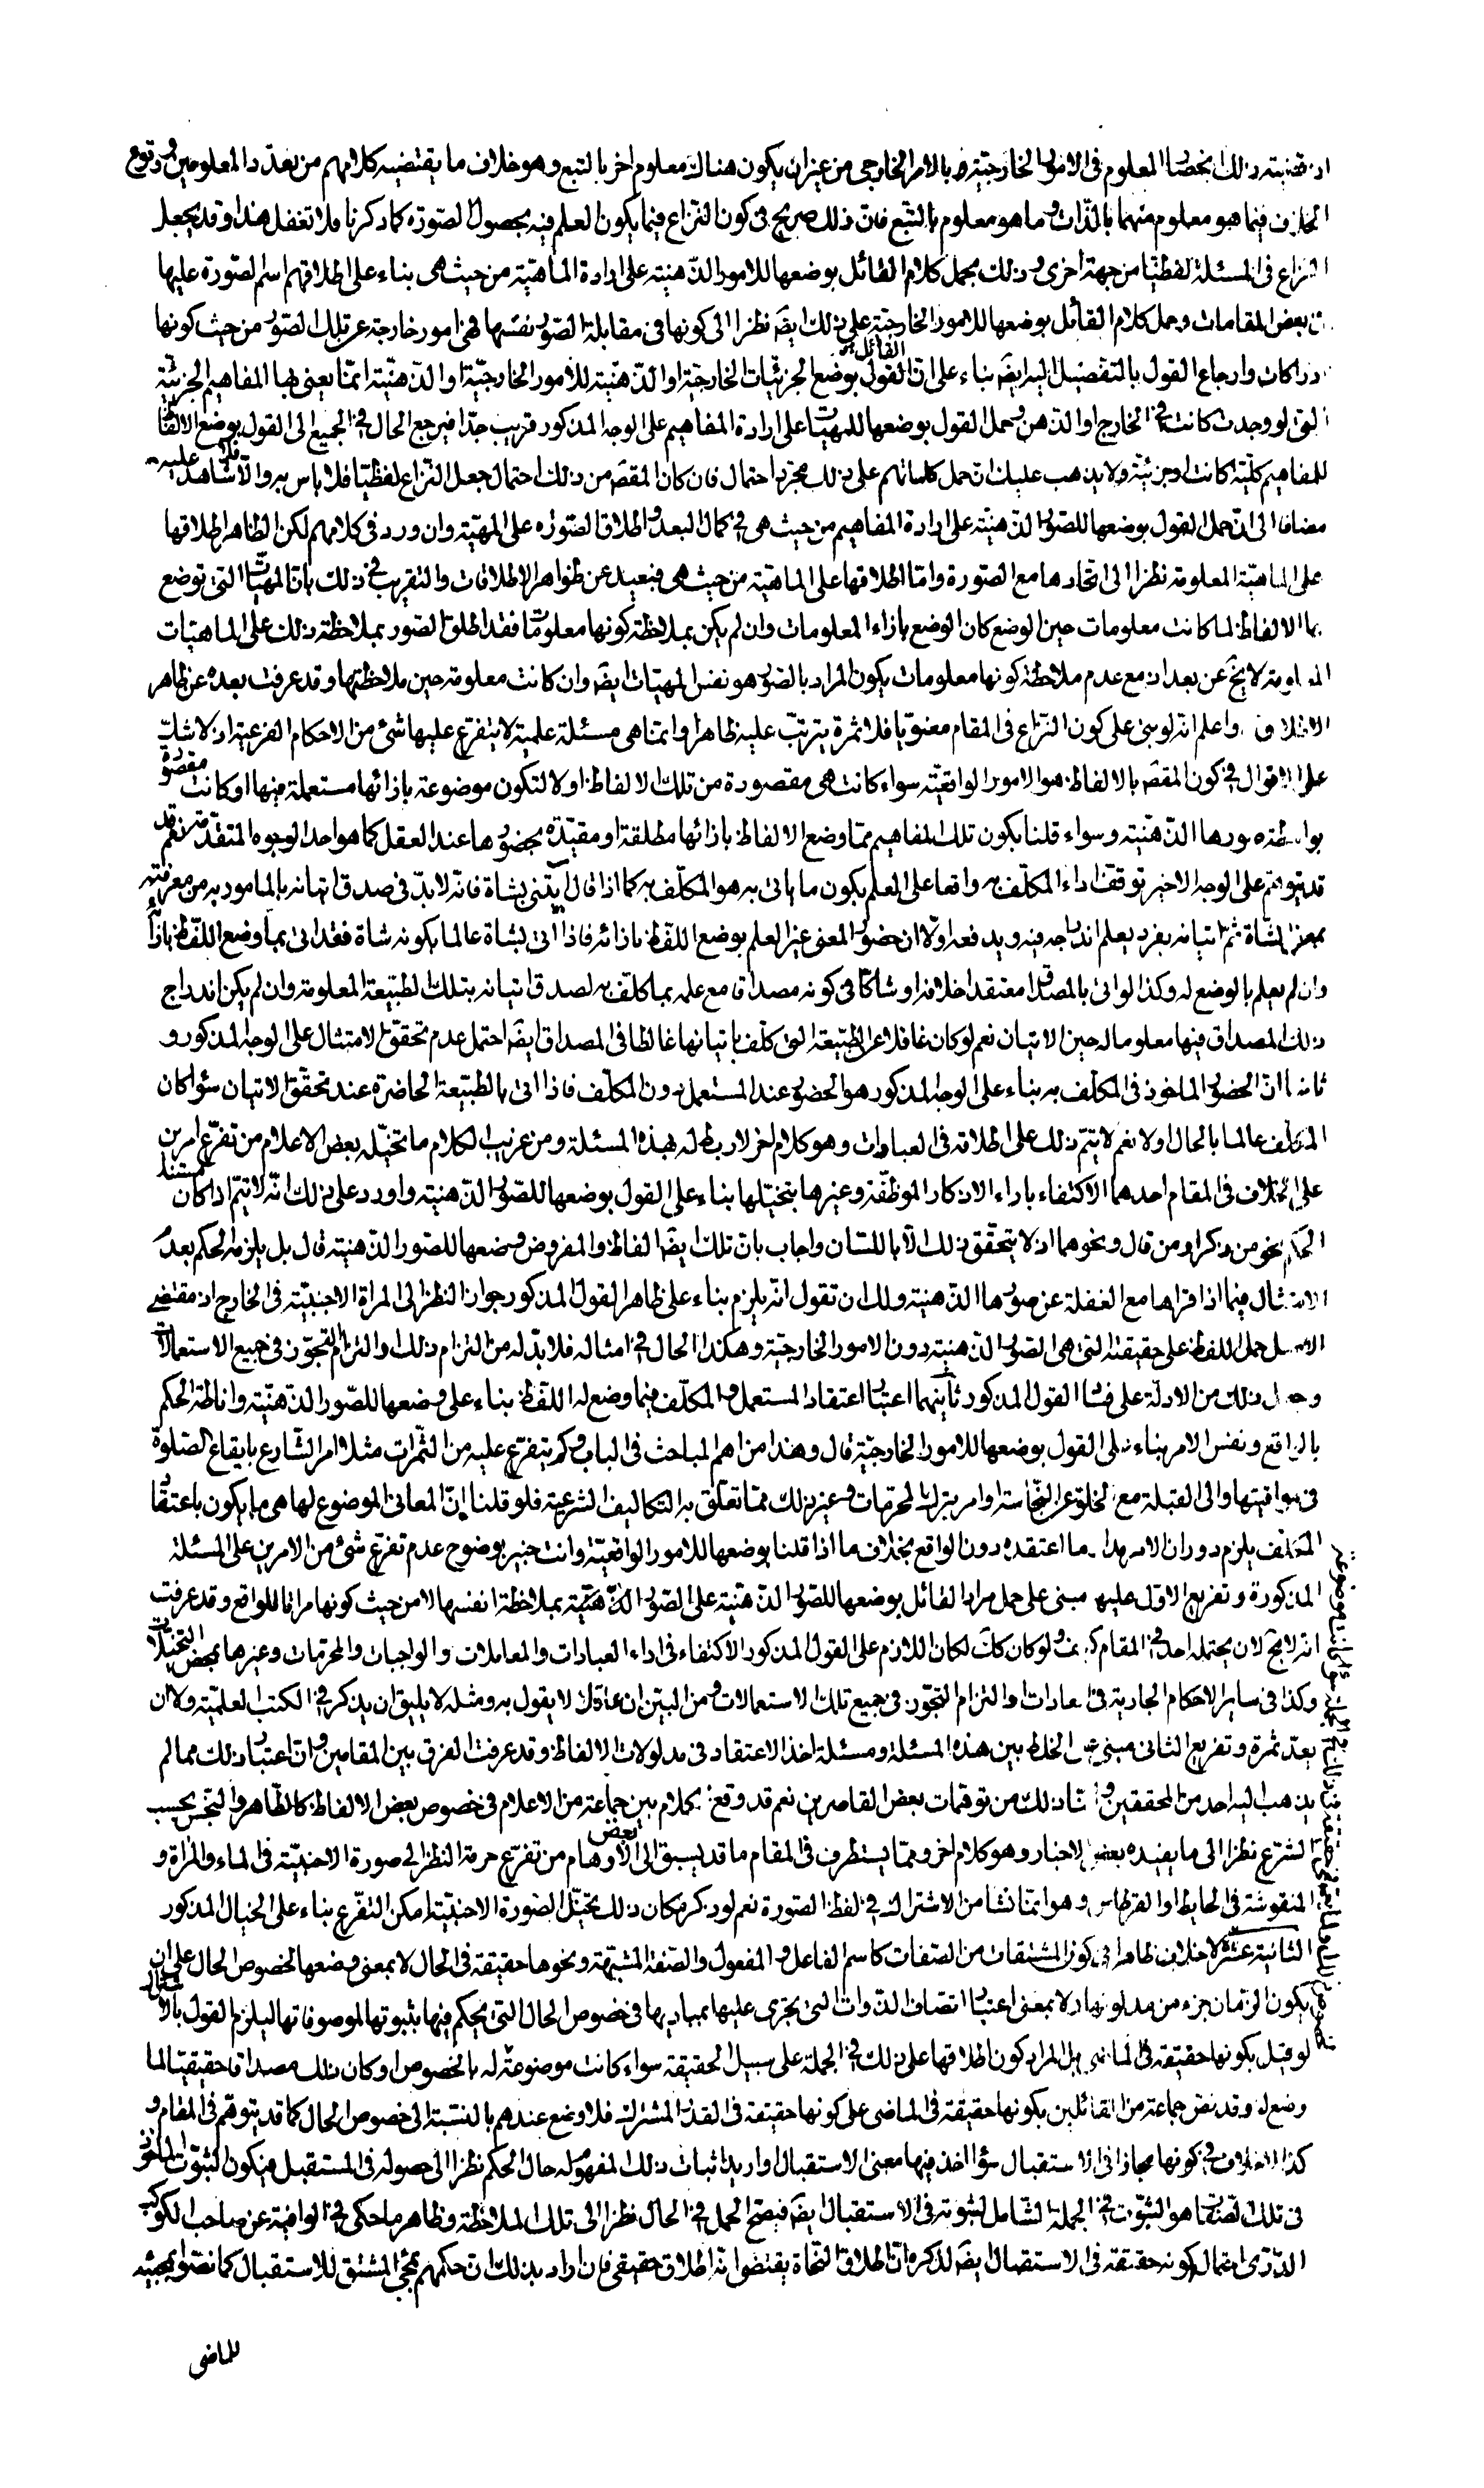 اذ قضية ذلك انحصار المعلوم فى الامور الخارجية بالامر الخارجى من غير ان يكون هناك معلوم اخر بالتبع وهو خلاف ما يقتضيه كلامهم من تعدد المعلومين و وقوع
الخلاف فيما هو معلوم منهما بالذات وما هو معلوم بالتبع فان ذلك صريح فى كون النزاع فيما يكون العلم فيه بحصول الصورة كما ذكرنا فلا تغفل هذا وقد يجعل
النزاع فى المسئلة لفظيا من جهة اخرى وذلك بحمل كلام القائل بوضعها للامور الذهنية على ارادة الماهية من حيث هى بناء على اطلاقهم اسم الصورة عليها
فى بعض المقامات وحمل كلام القائل بوضعها للامور الخارجية على ذلك ايضَ نظرا الى كونها فى مقابلة الصور نفسها فهى امور خارجة عن تلك الصور من حيث كونها
ادراكات وارجاع القول بالتفصيل اليه ايضَ بناء على ان القائل بوضع الجزئيات الخارجية او الذهنية للامور الخارجية او الذهنية انما يعنى بها المفاهيم الجزئية
التى لو وجدت كانت فى الخارج او الذهن وحمل القول بوضعها للمهيات على ارادة المفاهيم على الوجه المذكور قريب جدا فيرجع الحال فى الجميع الى القول بوضع الالفاظ
للمفاهيم كلية كانت او جزئية ولا يذهب عليك ان حمل كلماتهم على ذلك مجرد احتمال فان كان المقصَ من ذلك احتمال جعل النزاع لفظيا فلا باس به والا فلا شاهد عليه
مضافا الى ان حمل القول بوضعها للصور الذهنية على ارادة المفاهيم من حيث هى فى كمال البعد واطلاق الصورة على المهية وان ورد فى كلامهم لكن الظاهر اطلاقها
على الماهية المعلومة نظرا الى اتحادها مع الصورة واما اطلاقها على الماهية من حيث هى فبعيد عن ظواهر الاطلاقات والتقريب فى ذلك بان المهيات التى توضع
بها الالفاظ لما كانت معلومات حين الوضع كان الوضع بازاء المعلومات وان لم يكن بملاحظة كونها معلومات فقد اطلق الصور بملاحظة ذلك على الماهيات
المعلومة لا يخَ عن بعد اذ مع عدم ملاحظة كونها معلومات يكون المراد بالصور هو نفس المهيات ايضَ وان كانت معلومة حين ملاحظتها وقد عرفت بعده عن ظاهر
الاطلاق واعلم انه لو بنى على كون النزاع فى المقام معنويا فلا ثمرة يترتب عليه ظاهرا وانما هى مسئلة علمية لا يتفرع عليها شئ من الاحكام الفرعية اذ لا شك
على الاقوال فى كون المقصَ بالالفاظ هو الامور الواقعية سواء كانت هى مقصورة من تلك الالفاظ اولا لتكون موضوعة بازائها مستعملة فيها او كانت مقصورة
بواسطة صورها الذهنية وسواء قلنا بكون تلك المفاهيم مما وضع الالفاظ بازائها مطلقة او مقيدة بحضورها عند العقل كما هو احد الوجوه المتقدمة نعم قد
قد يتوهم على الوجه الاخير توقف اداء المكلف به واقعا على العلم بكون ما ياتى به هو المكلف به كما اذا قال ايتنى بشاة فانه لا بد فى صدق اتيانه بالمامور به من معرفته
بمعنى الشاة ثم اتيانه بفرد يعلم اندراجه فيه ويدفعه اولا ان حضور المعنى غير العلم بوضع اللفظ بازائه فاذا اتى بشاة عالما بكونه شاة فقد اتى بما وضع اللفظ بازائه
وان لم يعلم بالوضع له وكذا لو اتى بالمصداق معتقدا خلافه او شاكا فى كونه مصداقا مع علمه بما كلف به لصدق اتيانه بتلك الطبيعة المعلومة وان لم يكن اندراج
ذلك المصداق فيها معلوما له حين الاتيان نعم لو كان غافلا عن الطبيعة التى كلف باتيانها غالطا فى المصداق ايضَ احتمل عدم تحقق الامتثال على الوجه المذكور و
ثانيا ان الحضور الماخوذ فى المكلف به بناء على الوجه المذكور هو الحضور عند المستعمل دون المكلف فاذا اتى بالطبيعة الحاضرة عند تحقق الاتيان سواء كان
المكلف عالما بالحال اولا نعم لا يتم ذلك على اطلاقه فى العبادات وهو كلام اخر لا ربط له بهذه المسئلة ومن غريب الكلام ما تخيله بعض الاعلام من تفرع امرين
على الخلاف فى المقام احدهما الاكتفاء باداء الاذكار الموظفة وغيرها بتخيلها بناء على القول بوضعها للصور الذهنية واورد على ذلك انه لا يتم اذا كان مستند
الحكم نحو من ذكر او من قال ونحوهما اذ لا يتحقق ذلك الا باللسان واجاب بان تلك ايضَ الفاظ والمفروض وضعها للصور الذهنية قال بل يلزمه الحكم بعدم
الامتثال فيما اذا قراها مع الغفلة عن صورها الذهنية ولك ان تقول انه يلزم بناء على ظاهر القول المذكور جواز النظر الى المراة الاجنبية فى الخارج اذ مقتضى
الاصل حمل اللفظ على حقيقته التى هى الصور الذهنية دون الامور الخارجية وهكذا الحال فى امثاله فلا بد له من التزام ذلك او التزام التجوز فى جميع الاستعمالات
وجعل ذلك من الادلة على فساد القول المذكور ثانيهما اعتبار اعتقاد المستعمل والمكلف فيما وضع له اللفظ بناء على وضعها للصور الذهنية واناطة الحكم
بالواقع ونفس الامر بناء على القول بوضعها للامور الخارجية قال وهذا من اهم المباحث فى الباب وكم يتفرع عليه من الثمرات مثلا امر الشارع بايقاع الصلوة
فى مواقيتها والى القبلة مع الخلو عن النجاسة وامر بترك المحرمات وغير ذلك مما تعلق به التكاليف الشرعية فلو قلنا ان المعانى الموضوع لها هى ما يكون باعتقاد
المكلف يلزم دوران الامر مدار ما اعتقده دون الواقع بخلاف ما اذا قلنا بوضعها للامور الواقعية وانت خبير بوضوح عدم تفرع شئ من الامرين على المسئلة
المذكورة وتفريع الاول عليها مبنى على حمل مراد القائل بوضعها للصور الذهنية على الصور الذهنية بملاحظة انفسها لا من حيث كونها مراتا للواقع وقد عرفت
انه لا يخَ لان يحتمله احد فى المقام كيف ولو كان كك لكان اللازم على القول المذكور الاكتفاء فى اداء العبادات والمعاملات والواجبات والمحرمات وغيرها بمحض التخيلات
وكذا فى ساير الاحكام الجارية فى العادات او التزام التجوز فى جميع تلك الاستعمالات ومن البين ان عاقلا لا يقول به ومثله لا يليق ان يذكر فى الكتب العلمية ولا ان
يعد ثمرة وتفريع الثانى مبنى على الخلط بين هذه المسئلة ومسئلة اخذ الاعتقاد فى مدلولات الالفاظ وقد عرفت الفرق بين المقامين وان اعتبار ذلك مما لم
يذهب اليه احد من المحققين وانما ذلك من توهمات بعض القاصرين نعم قد وقع الكلام بين جماعة من الاعلام فى خصوص بعض الالفاظ كالطاهر والنجس بحسب
الشرع نظرا الى ما يفيده بعض الاخبار وهو كلام اخر ومما يستطرف فى المقام ما قد يسبق الى بعض الاوهام من تفرع حرمة النظر الى صورة الاجنبية فى الماء والمراة و
المنقوشة فى الحايط او القرطاس وهو انما نشا من الاشتراك فى لفظ الصورة نعم لو ذكر مكان ذلك تخيل الصورة الاجنبية امكن التفرع بناء على الخيال المذكور
الثانية عشر لا خلاف ظاهرا فى كون المشتقات من الصفات كاسم الفاعل والمفعول والصفة المشبهة ونحوها حقيقة فى الحال لا بمعنى وضعها لخصوص الحال على ان
يكون الزمان جزء من مدلولها ولا بمعنى اعتبار اتصاف الذوات التى يجرى عليها بمباديها فى خصوص الحال التى يحكم فيها بثبوتها لموصوفاتها ليلزم القول بالاشتراك
لو قيل بكونها حقيقة فى الماضى بل المراد كون اطلاقها على ذلك فى الجملة على سبيل الحقيقة سواء كانت موضوعة له بالخصوص او كان ذلك مصداقا حقيقيا لما
وضع له وقد نص جماعة من القائلين بكونها حقيقة فى الماضى على كونها حقيقة فى القدر المشترك فلا وضع عندهم بالنسبة الى خصوص الحال كما قد يتوهم فى المقام و
كذا لا خلاف فى كونها مجازا فى الاستقبال سواء اخذ فيها معنى الاستقبال او اريد اثبات ذلك المفهوم له حال الحكم نظرا الى حصوله فى المستقبل فيكون الثبوت الماخوذ
فى تلك الصفات هو الثبوت فى الجملة الشامل لثبوته فى الاستقبال ايضَ فيصح الحمل فى الحال نظرا الى تلك الملاحظة وظاهر ما حكى فى الوافية عن صاحب الكوكب
الدرى احتمال كونه حقيقة فى الاستقبال ايضَ لذكره ان اطلاق النحاة يقتضى انه اطلاق حقيقى فان اراد بذلك ان حكمهم بمجئ المشتق للاستقبال كما نصوا بمجيئه
للماضى